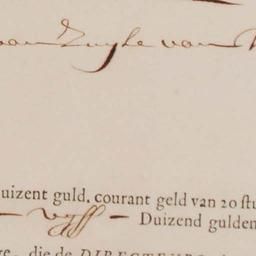 van Zuyle van
uizent guld. courant geld van 20 stu
— vyff — Duizend gulden
die de DIRECTEURS